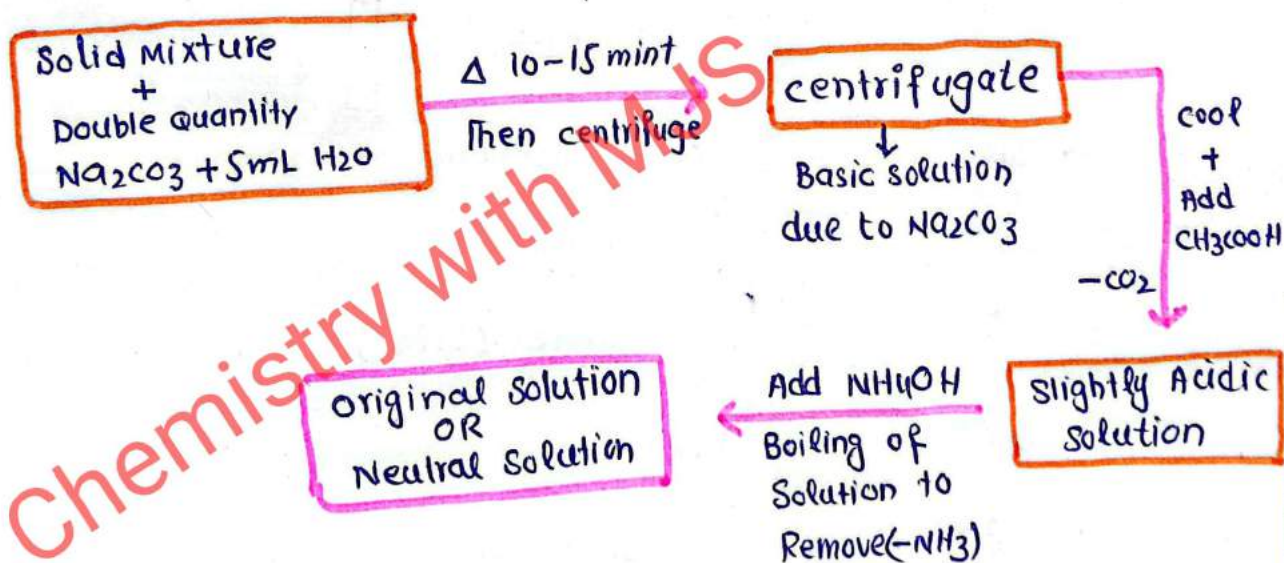 Solid Mixture
+
Double Quantity
Na2CO3 + 5mL H2O
Δ 10-15 mint
Then centrifuge
centrifugate
Basic solution
due to Na2CO3
cool
+
Add
CH3COOH
-CO2
Slightly Acidic
Solution
Add NH4OH
Boiling of
Solution to
Remove(-NH3)
Original Solution
OR
Neutral Solution
Chemistry with MJS